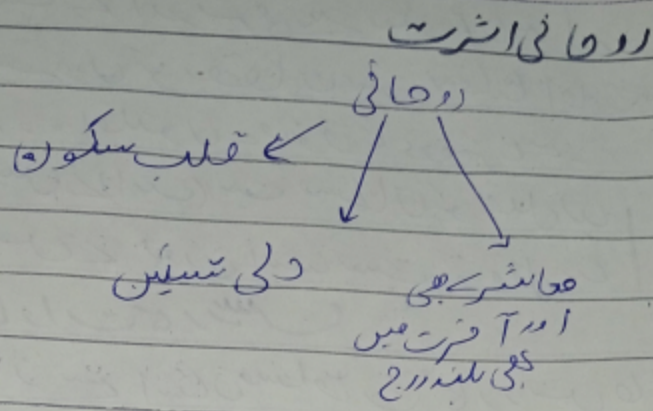 روحانی اثرت
روحانی
قلب سکون
دلی تسکین
معاشرے بھی
اور آخرت میں
بھی بلند درج